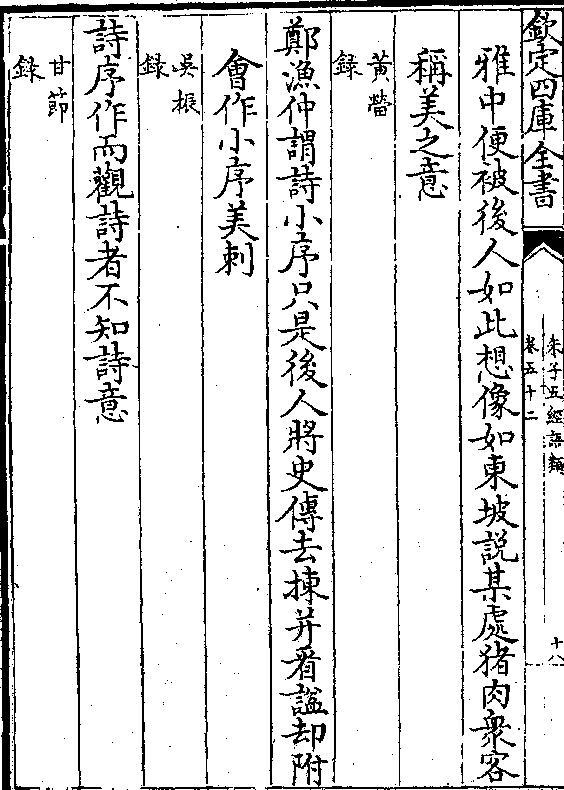 欽定四庫全書
朱子五經語類
卷五十二
十八
雅中便被後人如此想像如東坡説某處猪肉衆客
稱美之意
黄㽦
録
鄭漁仲謂詩小序只是後人將史傳去揀并看諡却附
㑹作小序美刺
吳振
録
詩序作而觀詩者不知詩意
甘節
録